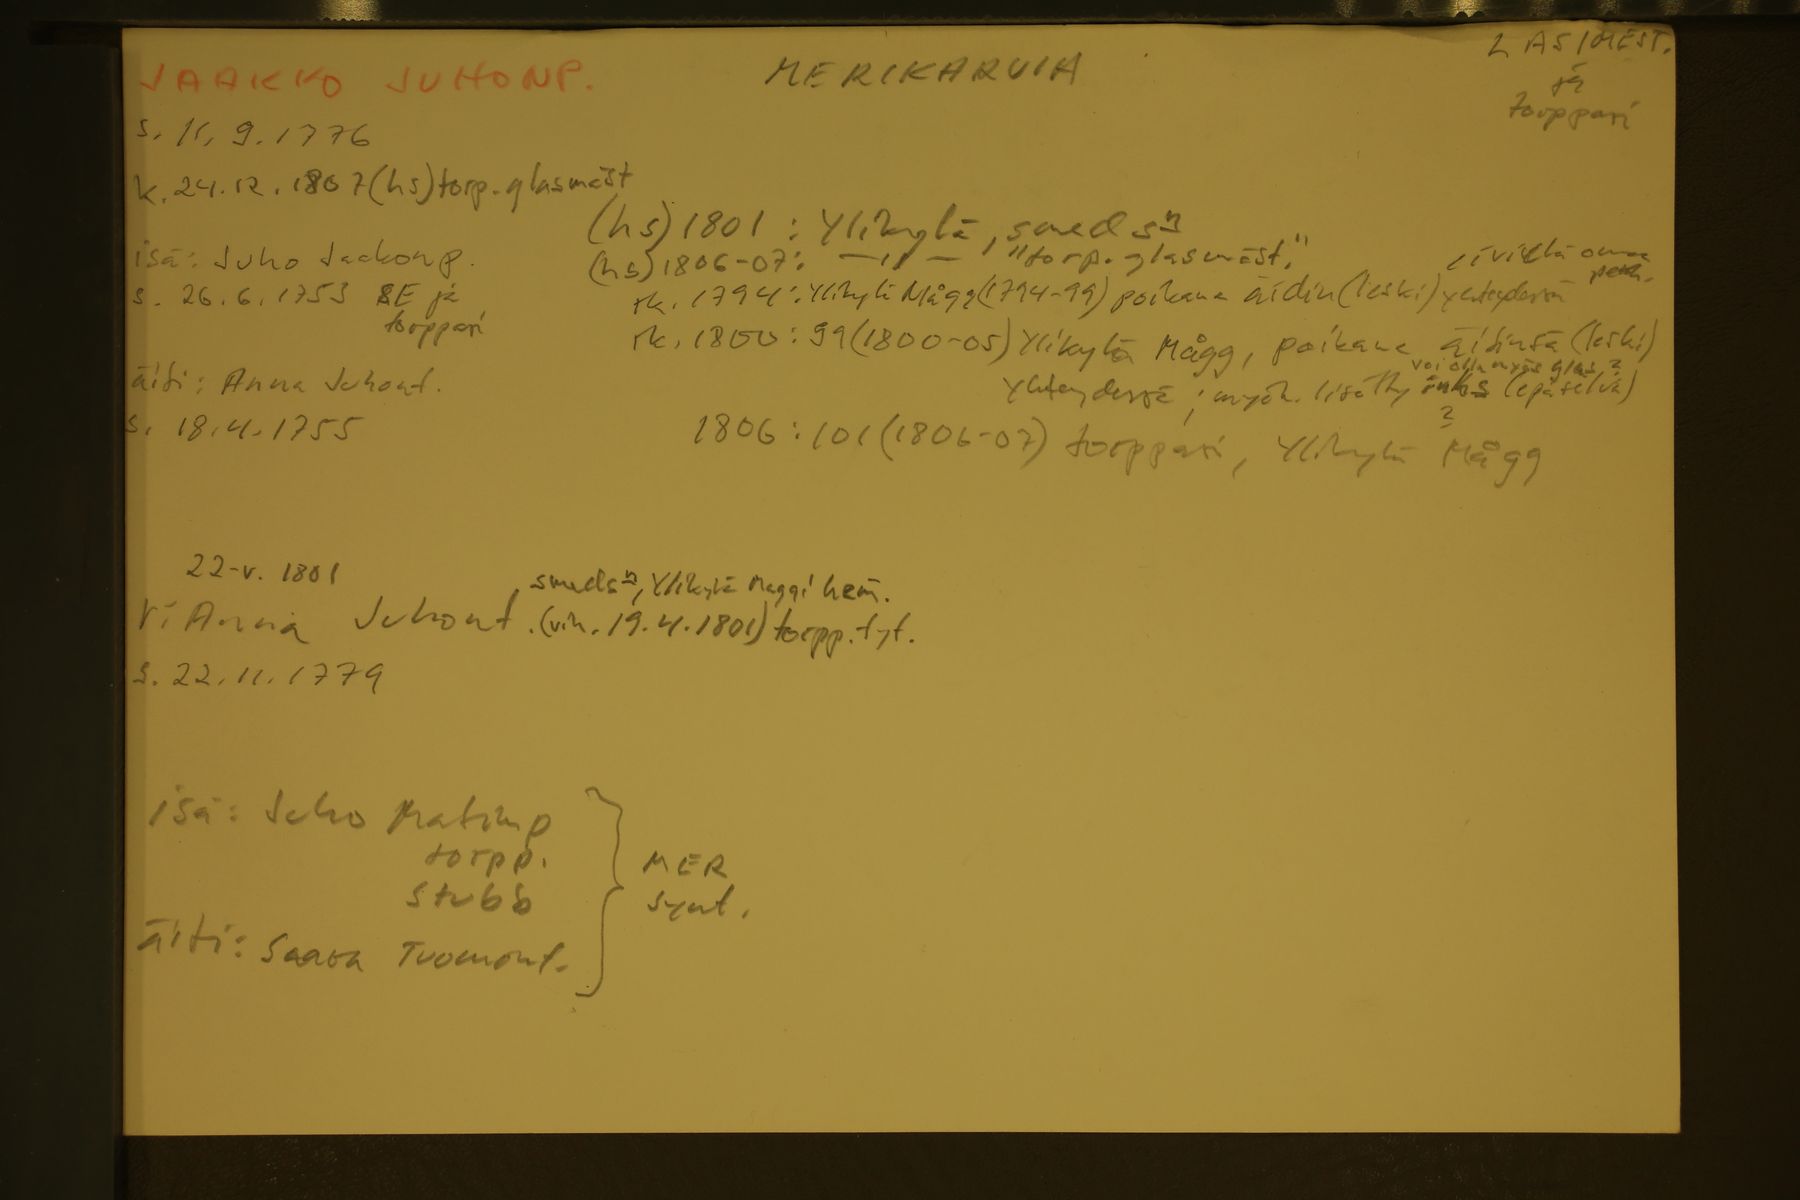 JAAKKO JUHONP.
MERIKARVIA
LASIMEST.
ja
torppari
s. 11.9.1776
k. 24.12.1807 (hs) torp. glasmäst
(hs) 1801 : Ylikylä, smeds n
(hs) 1806-07: —"— "torp. glasmäst."
isä: Juho Jaakonp.
s. 26.6.1753 SE ja
torppari
rk. 1794: Ylikylä Mågg (1794-99) poikana äidin (leski) yhteydessä
rivillä oma
rk. 1800: 99 (1800-05) Ylikylä Mågg, poikana äitinsä (leski)
voi olla myös glas ?
yhteydessä ; myöh. lisätty (epäselvä)
?
äiti: Anna Juhont.
s. 18.4.1755
1806: 101 (1806-07) torppari, Ylikylä Mågg
22-v. 1801
smeds n, Ylikylä Maggi hem.
V: Anna Juhont. (vih. 19.4.1801) torpp. tyt.
s. 22.11.1779
isä: Juho Matinp
torpp.
Stubb
äiti: Saara Tuomont.
MER
synt.